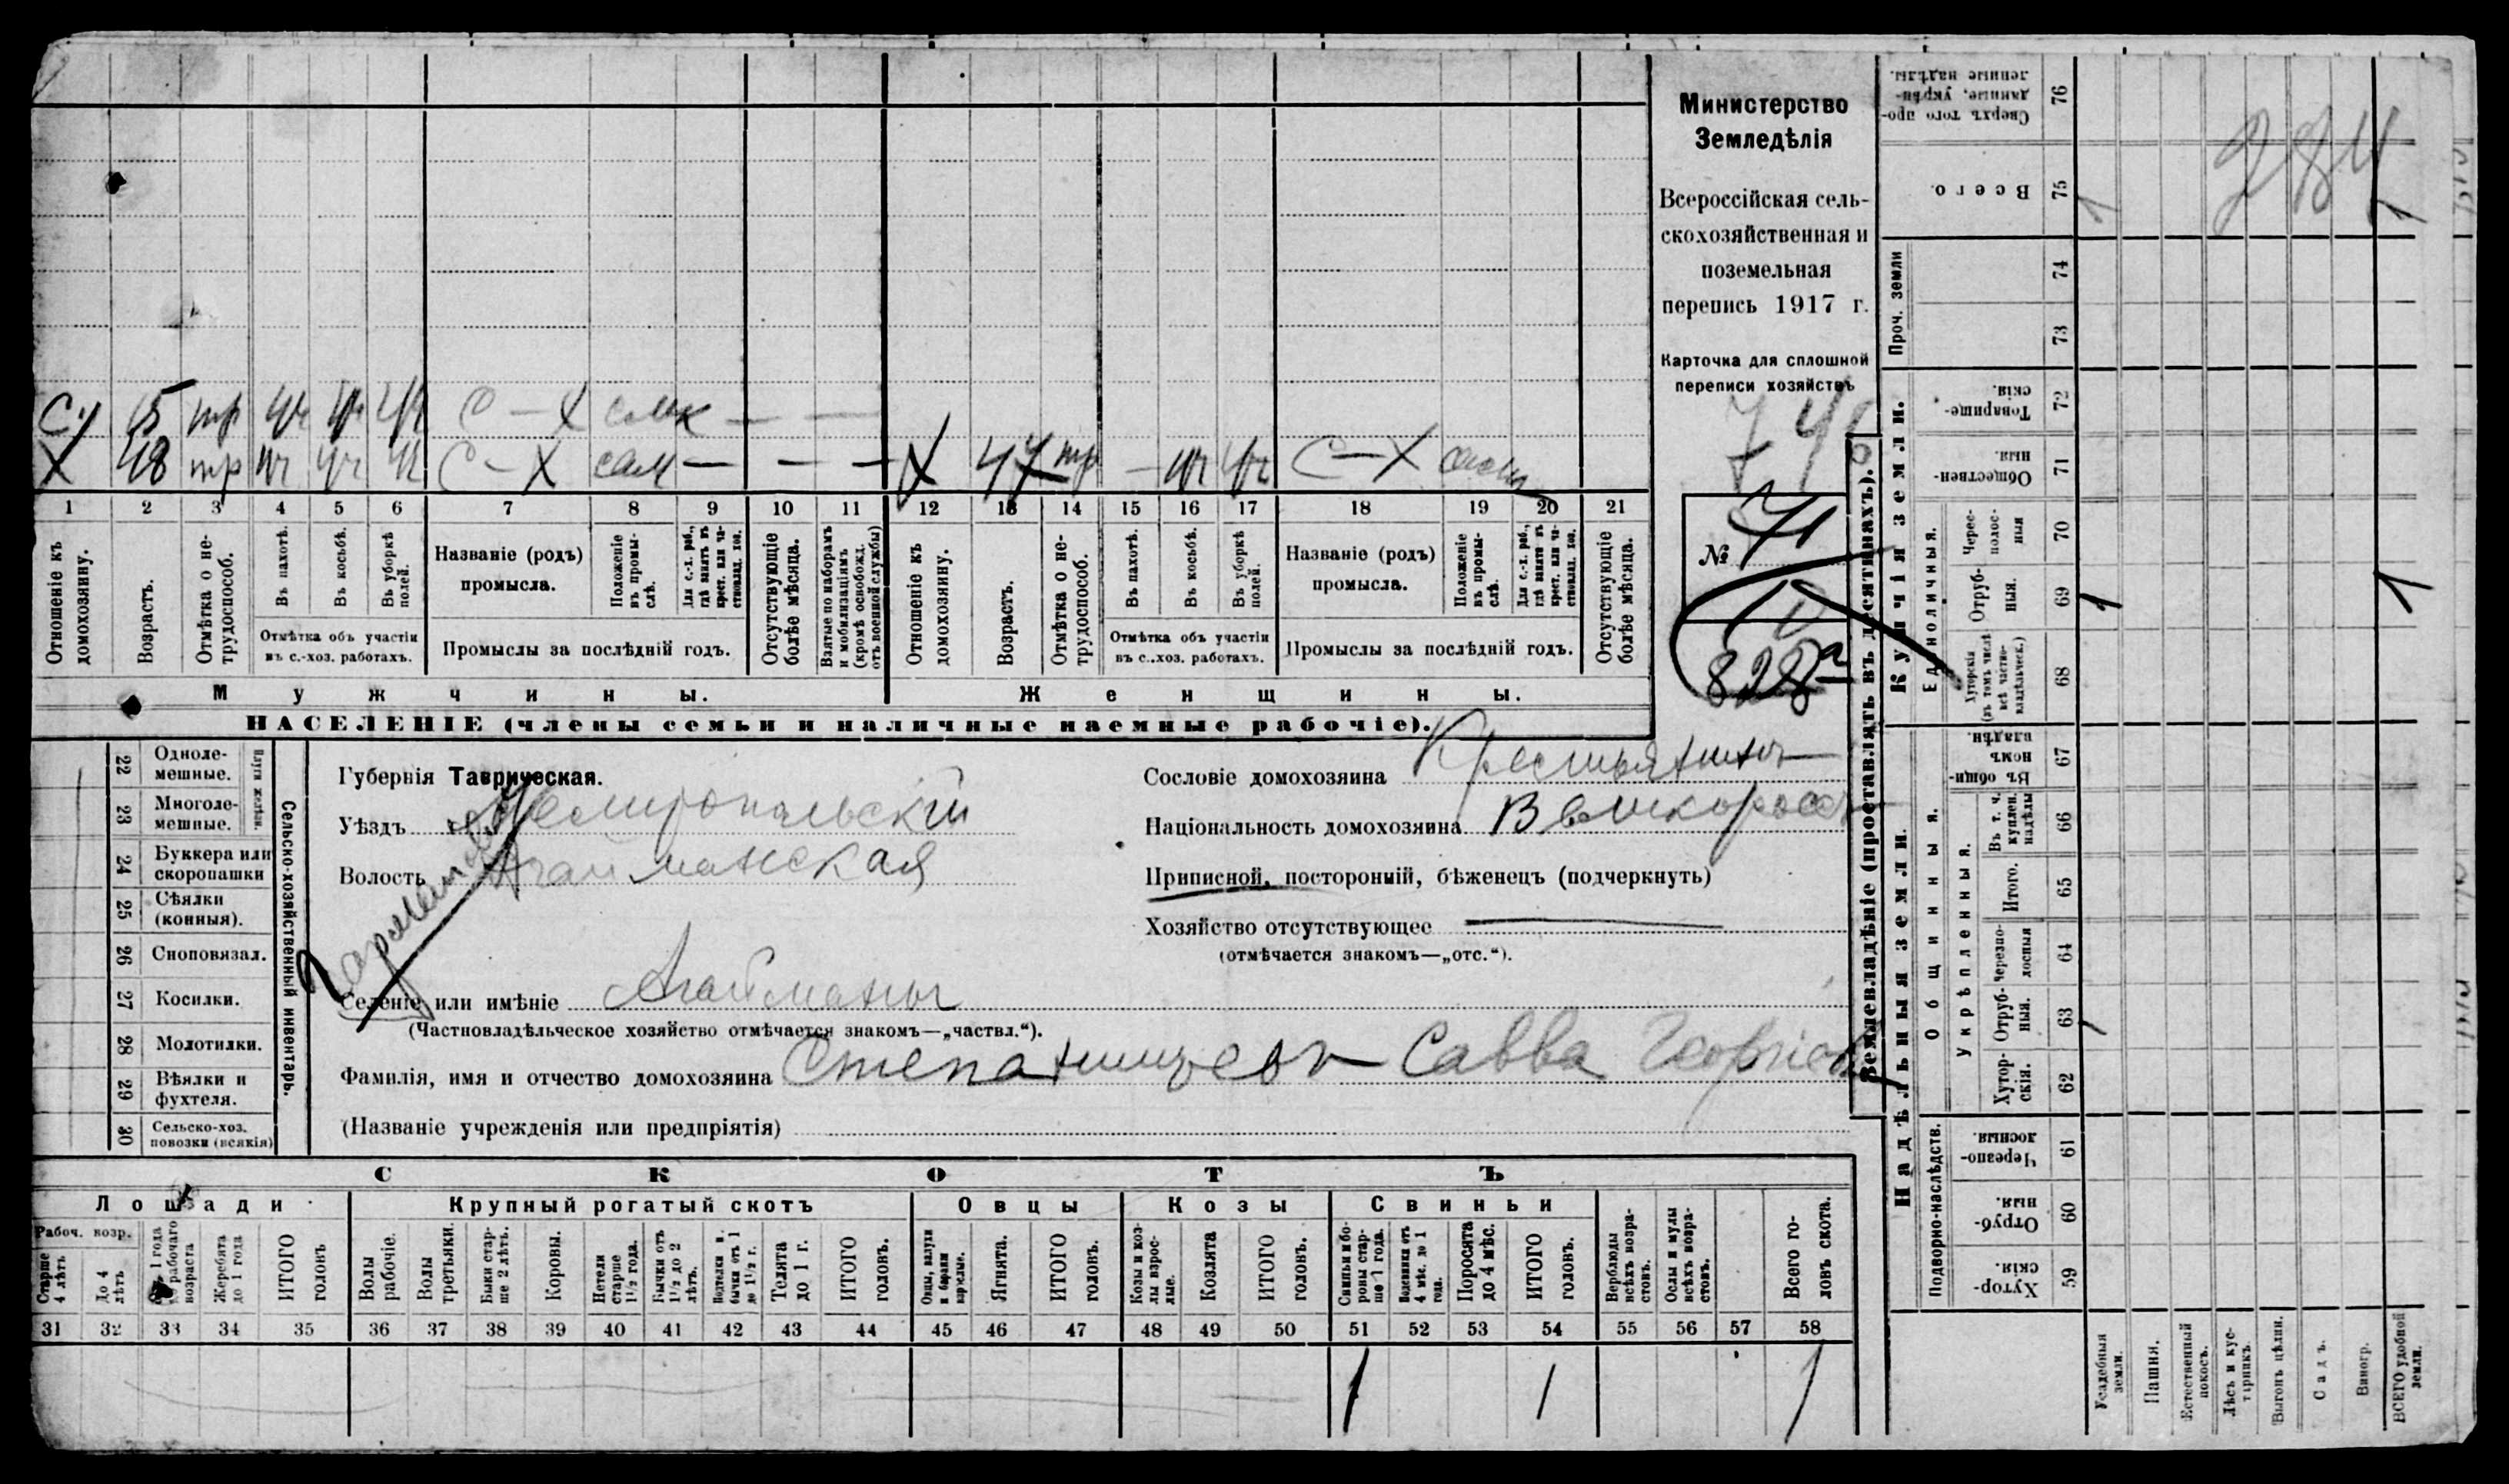 Министерство
Земледѣлія
Всероссійская сель-
скохозяйственная и
поземельная
перепись 1917 г.
Карточка для сплошной
переписи хозяйствъ
74
№ 71
828
С 15 тр уч уч уч С-Х
Х 48 тр уч уч уч С-Х сам — — — Х 47 тр — уч уч С-Х
1 2 3 4 5 6 7 8 9 10 11 12 13 14 15 16 17 18 19 20 21
Отношеніе къ домохозяину.
Возрастъ.
Отмѣтка о не-трудоспособ.
Въ пахотѣ.
Въ косьбѣ.
Въ уборкѣ полей.
Отмѣтка объ участіи
въ с.-хоз. работахъ.
Названіе (родъ)
промысла.
Положеніе въ промы-слѣ.
Для с.-х. раб., гдѣ занятъ въ крест. или ча-ствовлад. хоз.
Промыслы за послѣдній годъ.
Отсутствующіе болѣе мѣсяца.
Взятые по наборамъ и мобилизаціямъ (кромѣ освобожд. отъ военной службы)
Отношеніе къ домохозяину.
Возрастъ.
Отмѣтка о не-трудоспособ.
Въ пахотѣ.
Въ косьбѣ.
Въ уборкѣ полей.
Отмѣтка объ участіи
въ с.-хоз. работахъ.
Названіе (родъ)
промысла.
Положеніе въ промы-слѣ.
Для с.-х. раб., гдѣ занята въ крест. или ча-ствовлад. хоз.
Промыслы за послѣдній годъ.
Отсутствующіе болѣе мѣсяца.
Мужчины.
Женщины.
НАСЕЛЕНІЕ (члены семьи и наличные наемные рабочіе).
Сельско-хозяйственный инвентарь.
Плуги желѣзн.
22 Одноле-мешные.
23 Многоле-мешные.
24 Буккера или скоропашки
25 Сѣялки (конныя).
26 Сноповязал.
27 Косилки.
28 Молотилки.
29 Вѣялки и фухтеля.
30 Сельско-хоз. повозки (всякія)
Губернія Таврическая.
Уѣздъ Мелитопольскій
Волость Агайманская
Селеніе или имѣніе Агайманы
(Частновладѣльческое хозяйство отмѣчается знакомъ—„частвл.“).
Фамилія, имя и отчество домохозяина Савва Георгіев
(Названіе учрежденія или предпріятія)
Сословіе домохозяина Крестьянинъ
Національность домохозяина Великороссъ
Приписной, посторонній, бѣженецъ (подчеркнуть)
Хозяйство отсутствующее —
(отмѣчается знакомъ—„отс.“).
СКОТЪ
Лошади
Крупный рогатый скотъ
Овцы
Козы
Свиньи
Рабоч. возр.
Старше 4 лѣтъ
До 4 лѣтъ
1 года рабочаго возраста
Жеребята до 1 года
ИТОГО головъ
Волы рабочіе.
Волы третьяки.
Быки стар-ше 2 лѣтъ.
Коровы.
Нетели старше 1½ года.
Бычки отъ 1½ до 2 лѣтъ.
Подтелки и бычки отъ 1 до 1½ г.
Телята до 1 г.
ИТОГО головъ.
Овцы, валухи и бараны взрослые.
Ягнята.
ИТОГО головъ.
Козы и коз-лы взрос-лые.
Козлята
ИТОГО головъ.
Свиньи и бо-ровы стар-ше 1 года.
Подсвинки отъ 4 мѣс. до 1 года.
Поросята до 4 мѣс.
ИТОГО головъ.
Верблюды всѣхъ возра-стовъ.
Ослы и мулы всѣхъ возра-стовъ.
Всего го-ловъ скота.
31 32 33 34 35 36 37 38 39 40 41 42 43 44 45 46 47 48 49 50 51 52 53 54 55 56 57 58
1 1 1
Землевладѣніе (проставлять въ десятинахъ).
Надѣльныя земли.
Купчія земли.
Проч. земли
Подворно-наслѣдств.
Общинныя.
Укрѣпленныя.
Единоличныя.
Хутор-скія. 59
Отруб-ныя. 60
Черезпо-лосныя 61
Хутор-скія. 62
Отруб-ныя. 63
Черезпо-лосныя 64
Итого. 65
Въ т. ч. куплен. надѣлы 66
Въ общин-номъ владѣн. 67
Хуторскія (въ томъ числѣ всѣ частно-владѣльческ.) 68
Отруб-ныя. 69
Черес-полос-ныя 70
Обществен-ныя. 71
Товарище-скія. 72
73
74
Всего. 75
Сверхъ того про-данные, укрѣп-ленные надѣлы. 76
284
1 1
1 1
Усадебныя земли.
Пашня.
Естественный покосъ.
Лѣсъ и кус-тарникъ.
Выгонъ цѣлин.
Садъ.
Виногр.
ВСЕГО удобной земли.